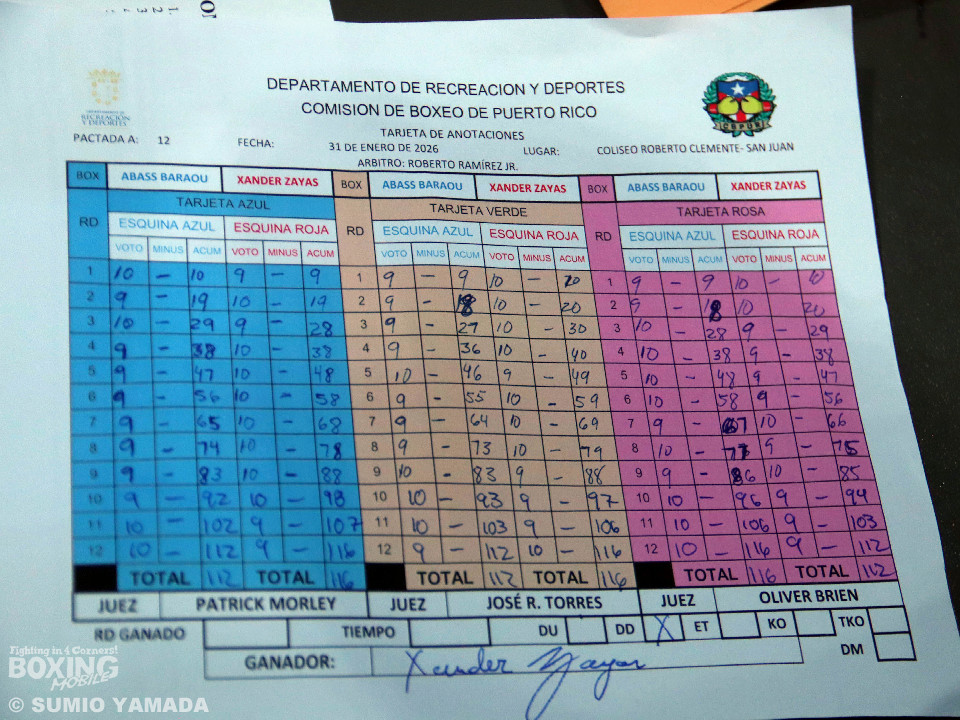 DEPARTAMENTO DE RECREACION Y DEPORTES
COMISION DE BOXEO DE PUERTO RICO
RECREACIÓN Y DEPORTES
CEPUR
TARJETA DE ANOTACIONES
PACTADA A: 12 FECHA: 31 DE ENERO DE 2026 LUGAR: COLISEO ROBERTO CLEMENTE- SAN JUAN
ARBITRO: ROBERTO RAMÍREZ JR.
BOX ABASS BARAOU XANDER ZAYAS BOX ABASS BARAOU XANDER ZAYAS BOX ABASS BARAOU XANDER ZAYAS
RD TARJETA AZUL RD TARJETA VERDE RD TARJETA ROSA
ESQUINA AZUL ESQUINA ROJA ESQUINA AZUL ESQUINA ROJA ESQUINA AZUL ESQUINA ROJA
VOTO MINUS ACUM VOTO MINUS ACUM VOTO MINUS ACUM VOTO MINUS ACUM VOTO MINUS ACUM VOTO MINUS ACUM
1 10 – 10 9 – 9 1 9 – 9 10 – 20 1 9 – 9 10 –
2 9 – 19 10 – 19 2 9 – 18 10 – 20 2 9 – 18 10 – 20
3 10 – 29 9 – 28 3 9 – 27 10 – 30 3 10 – 28 9 – 29
4 9 – 38 10 – 38 4 9 – 36 10 – 40 4 10 – 38 9 – 38
5 9 – 47 10 – 48 5 10 – 46 9 – 49 5 10 – 48 9 – 47
6 9 – 56 10 – 58 6 9 – 55 10 – 59 6 10 – 58 9 – 56
7 9 – 65 10 – 68 7 9 – 64 10 – 69 7 9 – 67 10 – 66
8 9 – 74 10 – 78 8 9 – 73 10 – 79 8 10 – 77 9 – 75
9 9 – 83 10 – 88 9 10 – 83 9 – 88 9 9 – 86 10 – 85
10 9 – 92 10 – 98 10 10 – 93 9 – 97 10 10 – 96 9 – 94
11 10 – 102 9 – 107 11 10 – 103 9 – 106 11 10 – 106 9 – 103
12 10 – 112 9 – 116 12 9 – 112 10 – 116 12 10 – 116 9 – 112
TOTAL 112 TOTAL 116 TOTAL 112 TOTAL 116 TOTAL 116 TOTAL 112
JUEZ PATRICK MORLEY JUEZ JOSÉ R. TORRES JUEZ OLIVER BRIEN
RD GANADO TIEMPO DU DD X ET KO TKO
DM
GANADOR: Xander Zayas
Fighting in 4 Corners!
BOXING
MOBILE
© SUMIO YAMADA